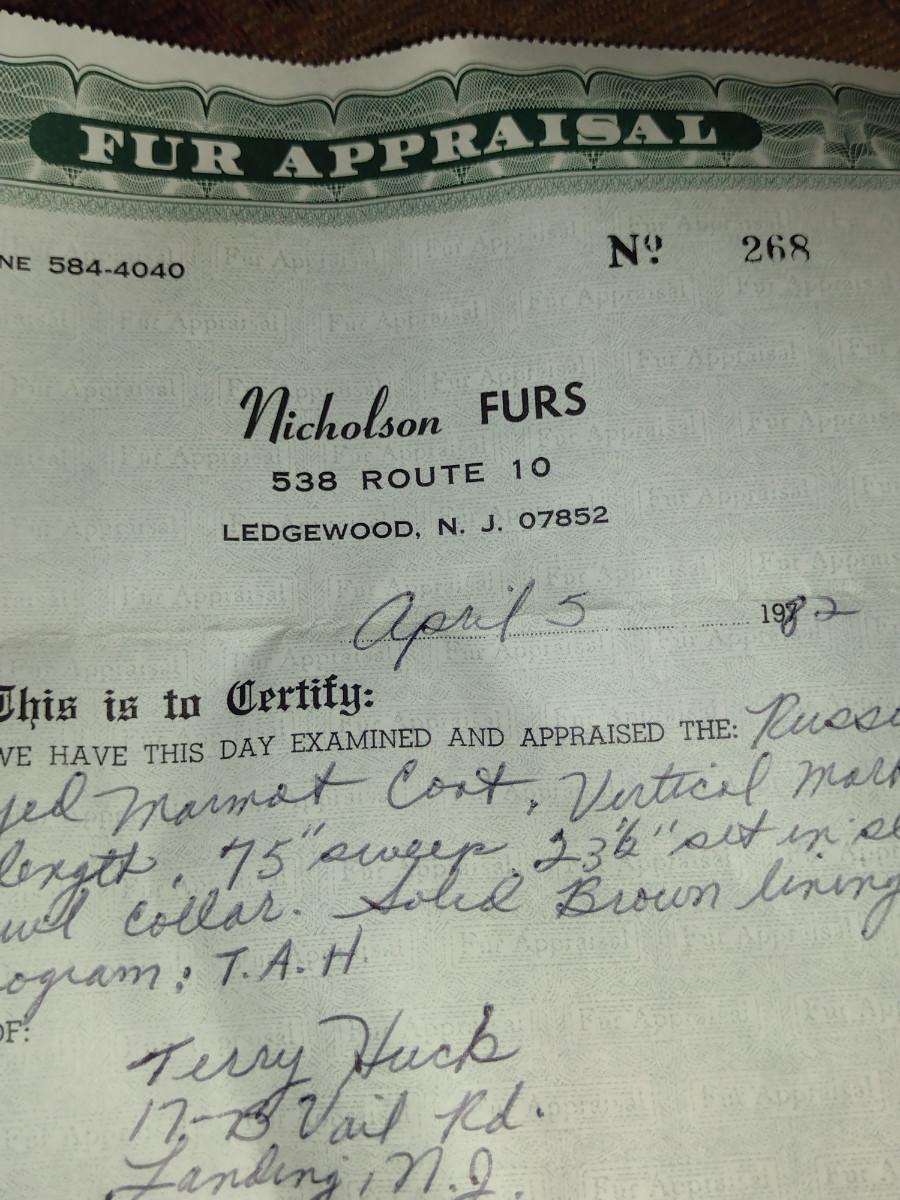 FUR APPRAISAL
NE 584-4040
Nº 268
Nicholson FURS
538 ROUTE 10
LEDGEWOOD, N. J. 07852
April 5 1982
This is to Certify:
WE HAVE THIS DAY EXAMINED AND APPRAISED THE: Russi
yed Marmot Coat, Vertical mark
length, 75" sweep, 23½" set in sl
awl Collar. Solid Brown lining
ogram: T.A.H.
OF:
Terry Huck
17-B Vail Rd.
Landing, N.J.